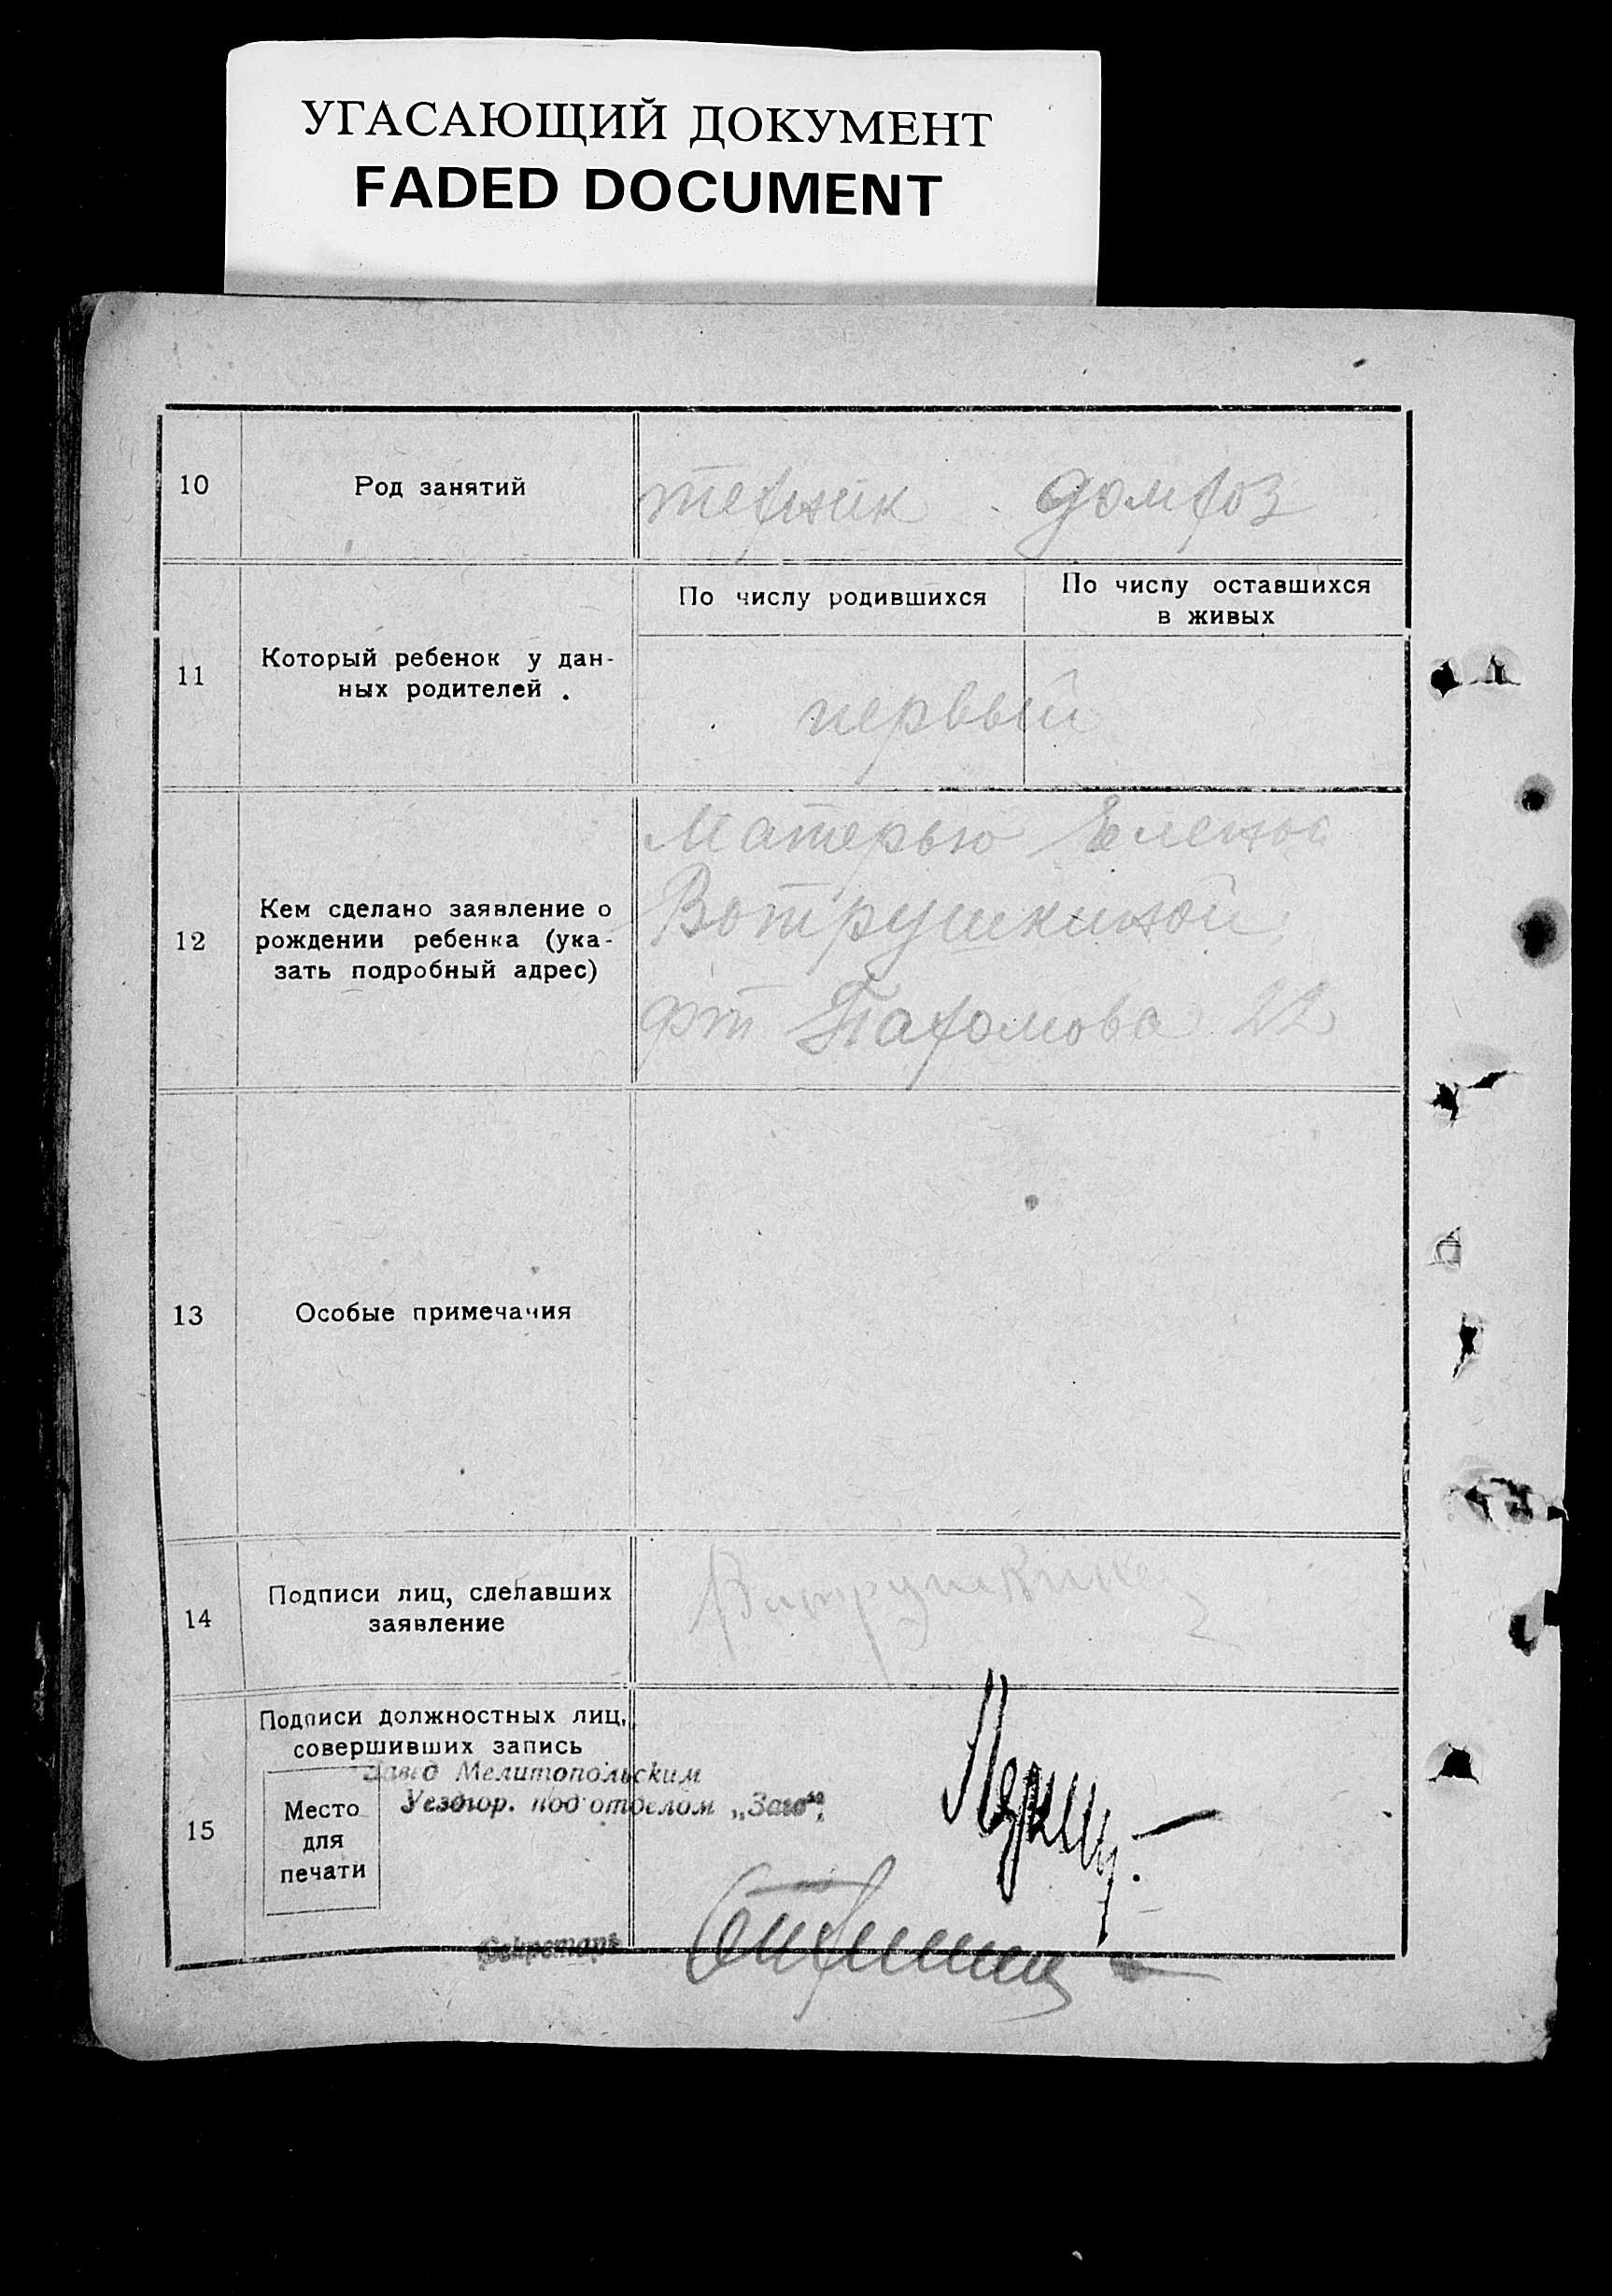 УГАСАЮЩИЙ ДОКУМЕНТ
FADED DOCUMENT
10 Род занятий техник домхоз
11 Который ребенок у дан-
ных родителей.
По числу родившихся
По числу оставшихся
в живых
первый
12 Кем сделано заявление о
рождении ребенка (ука-
зать подробный адрес)
Матерью Еленой
Вотрушкиной
Пахомова 22
13 Особые примечания
14 Подписи лиц, сделавших
заявление
Вотрушкина
15 Подписи должностных лиц,
совершивших запись
Завед Мелитопольским
Уездгор. подотделом „Загс“
Место
для
печати
Секретарь